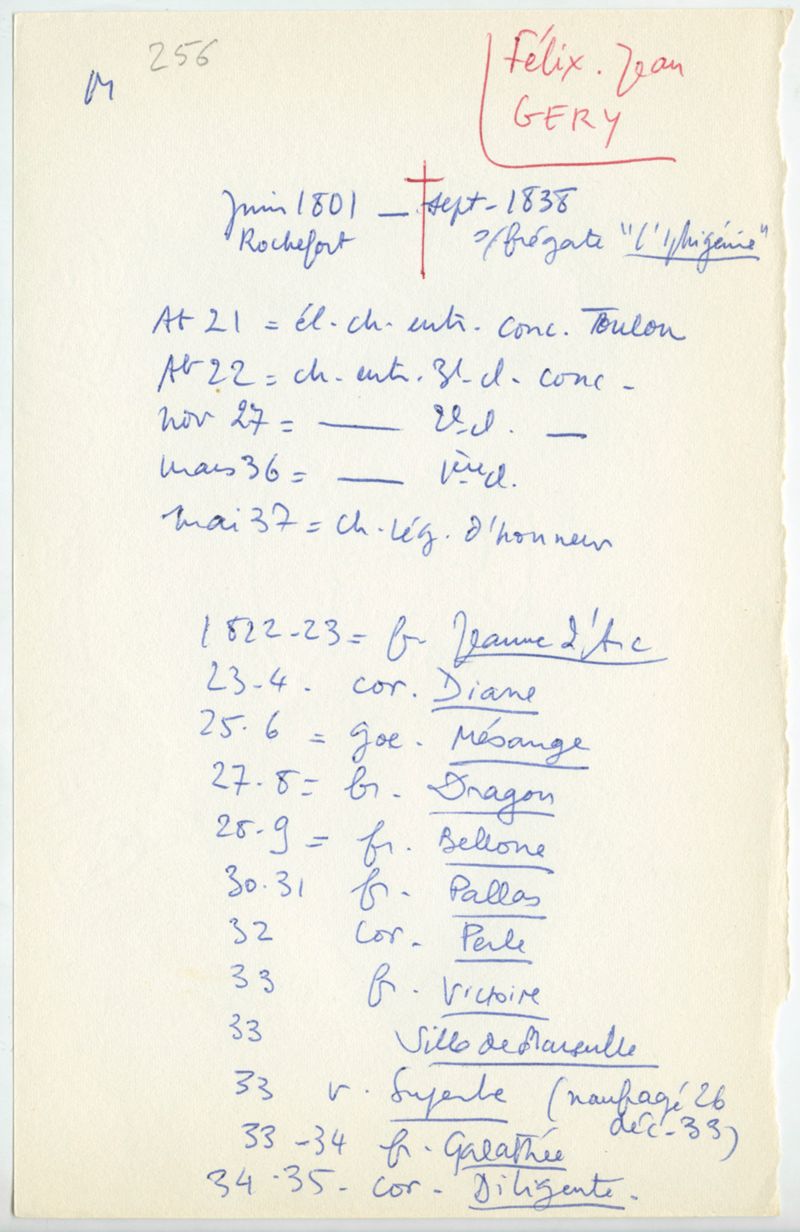 256
M
Félix. Jean
GERY
Juin 1801 — sept- 1838
Rochefort s/frégate "l'Iphigénie"
At 21 = él. ch. entr. conc. Toulon
At 22 = ch. entr. 3e cl. conc -
nov 27 = —— 2e cl. —
mars 36 = —— 1ère cl.
mai 37 = ch. lég. d'honneur
1822-23 = fr. Jeanne d'Arc
23-4. cor. Diane
25.6 = goe. Mésange
27.8 = br. Dragon
28.9 = fr. Bellone
30.31 fr. Pallas
32 cor. Perle
33 fr. Victoire
33 Ville de Marseille
33 v. Superbe (naufragé 26
déc-33)
33-34 fr. Galathée
34.35- cor. Diligente.